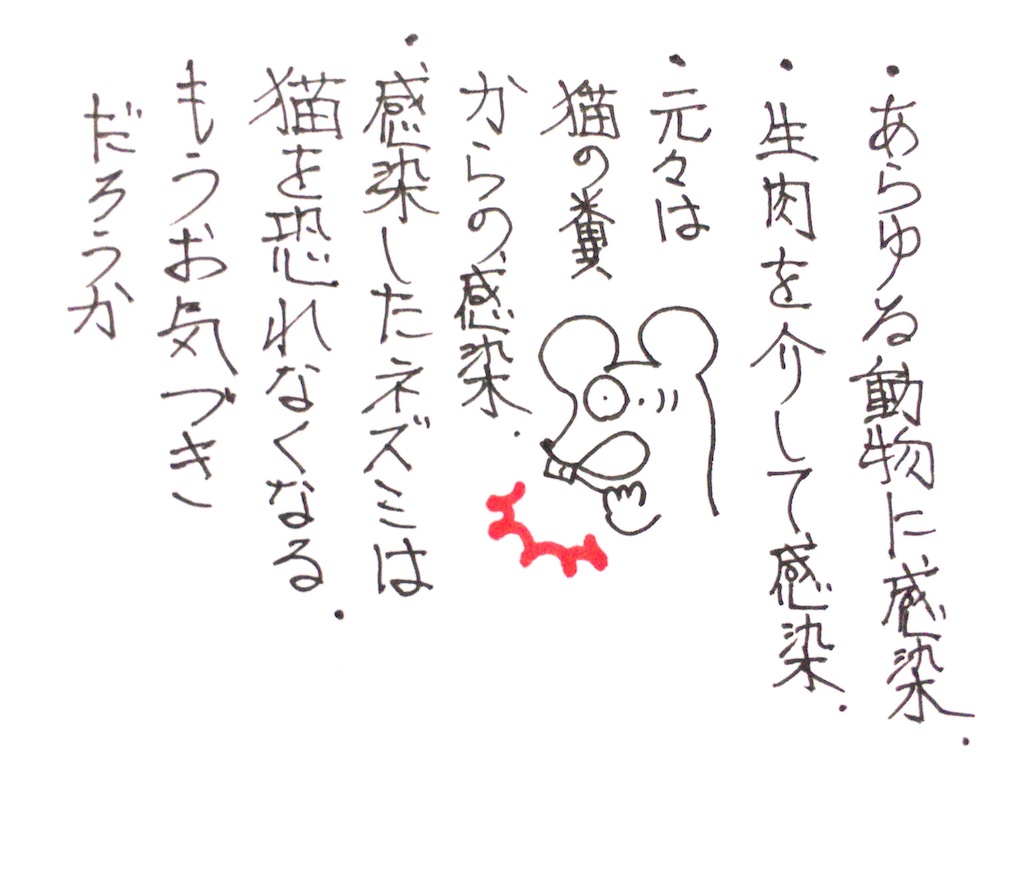 ・あらゆる動物に感染.
・生肉を介して感染.
・元々は
猫の糞
からの感染.
・感染したネズミは
猫を恐れなくなる.
もうお気づき
だろうか